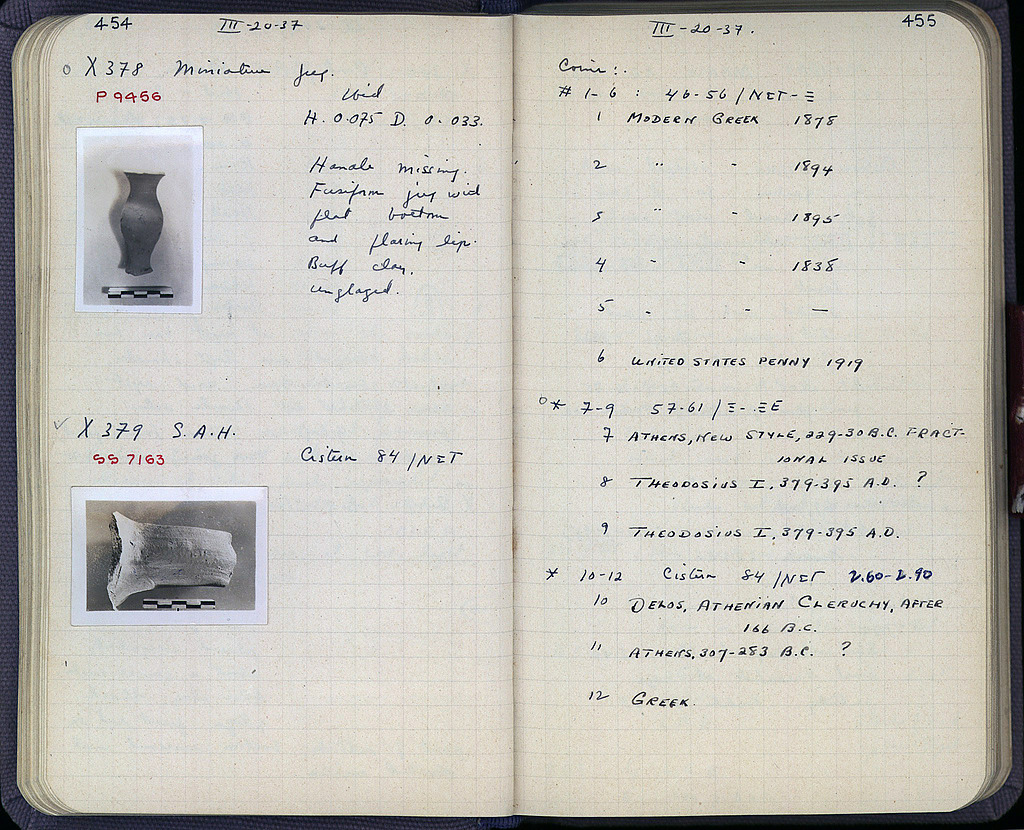 454
III-20-37
X 378 Miniature jug.
P 9456
wid
H. 0.075 D. 0.033.
Handle missing.
Fusiform jug wid
flat bottom
and flaring lip.
Buff clay.
unglazed.
X 379 S.A.H.
SS 7163
Cistern 84/NET
III-20-37.
455
Coins:.
# 1-6 : 46-56/NET-Ξ
1 MODERN GREEK 1878
2 " - 1894
3 " - 1895
4 " - 1838
5 - - —
6 UNITED STATES PENNY 1919
* 7-9 57-61/Ξ-ΞE
7 ATHENS, NEW STYLE, 229-30 B.C. FRACT-
IONAL ISSUE
8 THEODOSIUS I, 379-395 A.D. ?
9 THEODOSIUS I, 379-395 A.D.
* 10-12 Cistern 84/NET 2.60-2.90
10 DELOS, ATHENIAN CLERUCHY, AFTER
166 B.C.
11 ATHENS, 307-283 B.C. ?
12 GREEK.